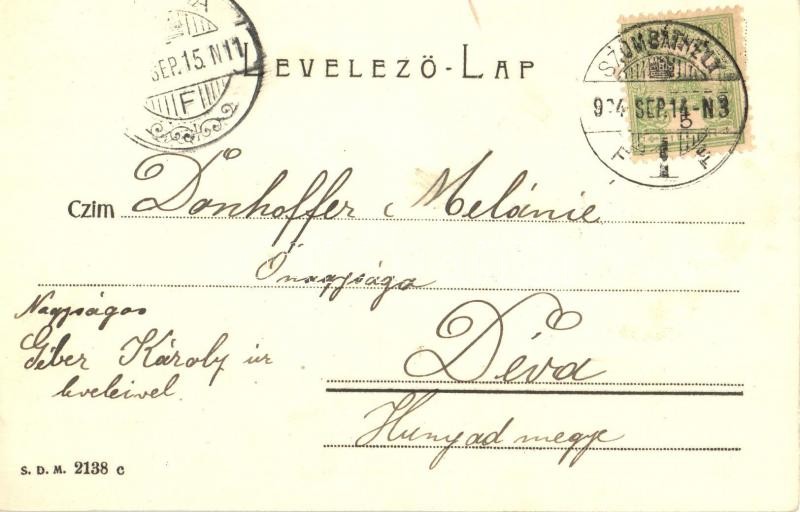 SEP.15.N11
F
LEVELEZŐ-LAP
SZOMBATHELY
904 SEP.14-N3
5
F
Czim Donhoffer Melánie
Őnagysága
Nagyságos
Géber Károly úr
leveleivel.
Déva
Hunyad megye
S. D. M. 2138 C